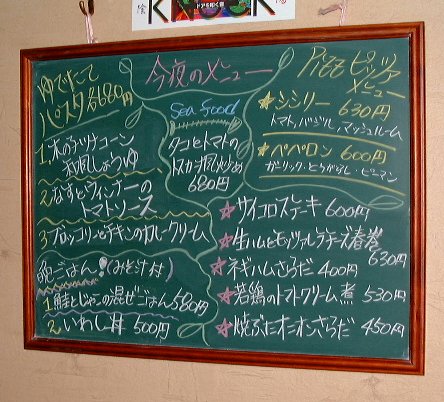 KNOCK
ドアを叩く音
今夜のメニュー
ゆでたて
パスタ各680円
1, 木の子ツナコーン
和風しょうゆ
2, なすとウィンナーの
トマトソース
3 ブロッコリーとチキンのカレークリーム
晩ごはん! (みそ汁付)
1, 鮭とじゃこの混ぜごはん 580円
2, いわし丼 500円
Sea Food
タコとトマトの
トスカーナ風炒め
680円
Pizz ピッツァ
メニュー
★シシリー 630円
トマト, バジル, マッシュルーム
★ペペロン 600円
ガーリック・とうがらし・ピーマン
★サイコロステーキ 600円
★生ハムとモッツァレラチーズ春巻
630円
★ネギハムさらだ 400円
★若鶏のトマトクリーム煮 530円
★焼ぶたオニオンさらだ 450円